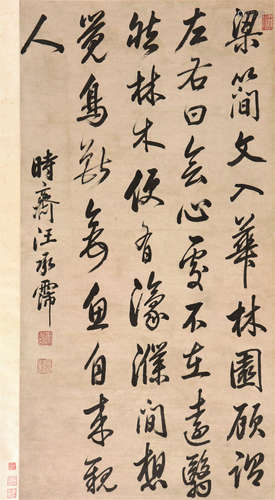 梁簡文入華林園顧謂
左右曰會心處不在遠翳
然林木便有濠濮間想
覺鳥獸禽魚自来親
人
時齋汪承霈